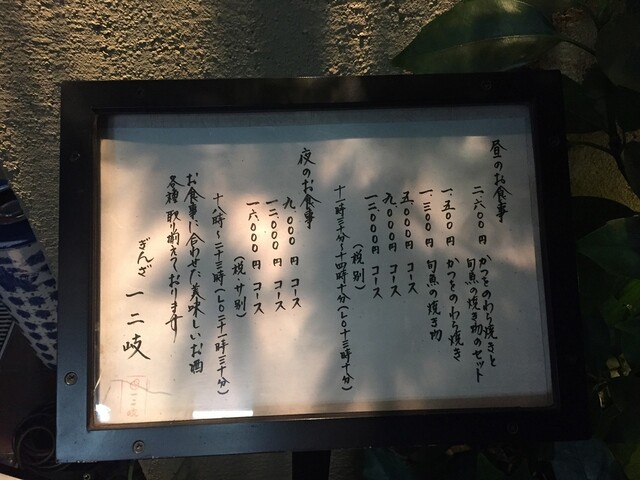 昼のお食事
二、六〇〇円 かつをのわら焼きと
旬魚の焼き物のセット
一、五〇〇円 かつをのわら焼き
一、三〇〇円 旬魚の焼き物
五、〇〇〇円 コース
九、〇〇〇円 コース
一二、〇〇〇円 コース
(税別)
十一時三十分~十四時十分(LO十三時十分)
夜のお食事
九、〇〇〇円 コース
一二、〇〇〇円 コース
一六、〇〇〇円 コース
(税サ別)
十八時~二十三時(LO二十一時三十分)
お食事に合わせた美味しいお酒
各種取り揃えております
ぎんざ 一二岐